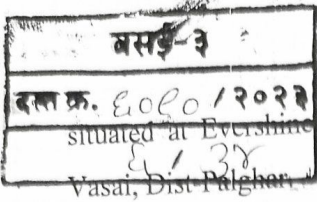 वसई-३
दस्त क्र. ६०९० / २०२३
situated at Evershine
६ / ३४
Vasai, Dist-Palghar,